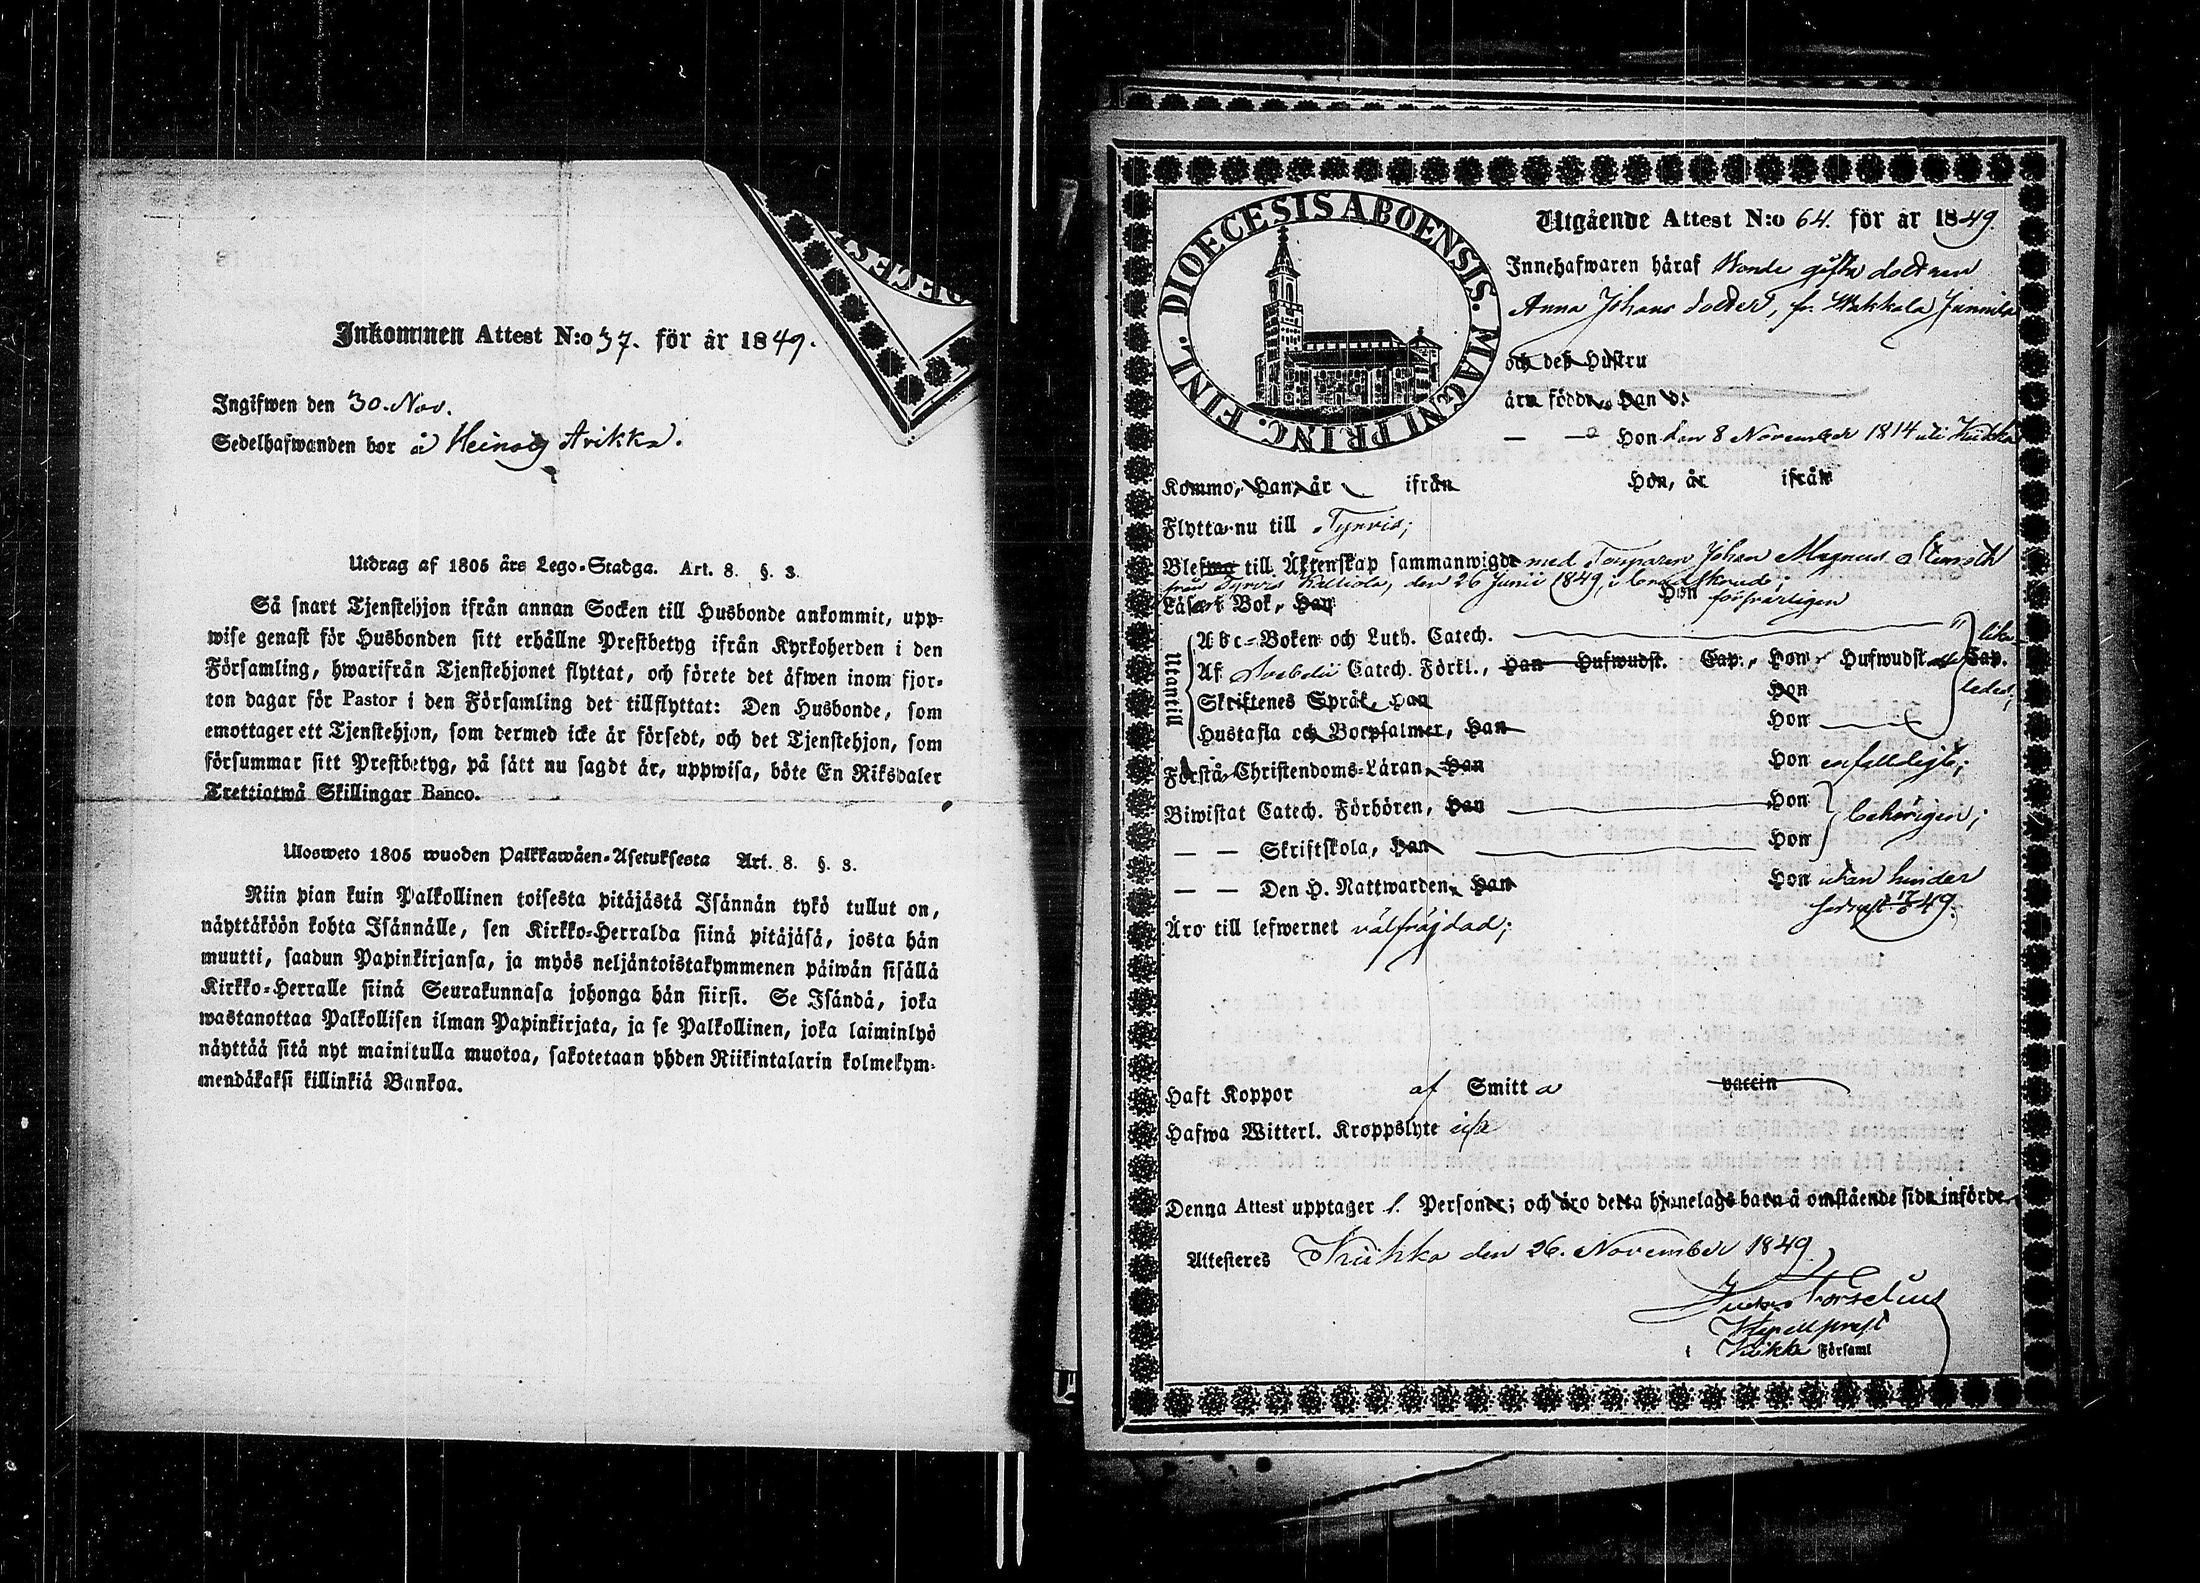 Inkommen Attest N:o 37. för år 1849.
Ingifwen den 30. Nov.
Sedelhafwanden bor å Heinoo Arikka.
Utdrag af 1805 års Lego-Stadga. Art. 8. §. 3.
Så snart Tjenstehjon ifrån annan Socken till Husbonde ankommit, upp-
wise genast för Husbonden sitt erhållne Prestbetyg ifrån Kyrkoherden i den
Församling, hwarifrån Tjenstehjonet flyttat, och förete det äfwen inom fjor-
ton dagar för Pastor i den Församling det tillflyttat: Den Husbonde, som
emottager ett Tjenstehjon, som dermed icke är försedt, och det Tjenstehjon, som
försummar sitt Prestbetyg, på sätt nu sagdt är, uppwisa, böte En Riksdaler
Trettiotwå Skillingar Banco.
Ulosweto 1805 wuoden Palkkawäen-Asetuksesta Art. 8. §. 3.
Niin pian kuin Palkollinen toisesta pitäjästä Isännän tykö tullut on,
näyttäköön kohta Isännälle, sen Kirkko-Herralda siinä pitäjäsä, josta hän
muutti, saadun Papinkirjansa, ja myös neljäntoistakymmenen päiwän sisällä
Kirkko-Herralle siinä Seurakunnasa johonga hän siirsi. Se Isändä, joka
wastanottaa Palkollisen ilman Papinkirjata, ja se Palkollinen, joka laiminlyö
näyttää sitä nyt mainitulla muotoa, sakotetaan yhden Riikintalarin kolmekym-
mendäkaksi killinkiä Bankoa.
DIOECESIS ABOENSIS. MAGNI PRINC. FINL.
Utgående Attest N:o 64. för år 1849.
Innehafwaren häraf Bonde gifta dottren
Anna Johans dotter, fr. Wakkala Junnila
och des Hustru
äro födde, Han d.
— — Hon den 8 November 1814 uti Kiikka
Kommo, Han, år ifrån Hon, år ifrån
Flytta nu till Tyrvis;
Blefwo till Äktenskap sammanwigde med Torparen Johan Magnus Stenroth
från Tyrvis Kalliola, den 26 Junii 1849, i brudskrud;
Läsa i Bok, Han Hon försvarligen
Utantill
Abc-Boken och Luth. Catech. lika-
Af Svebelii Catech. Förkl., Han Hufwudst. Cap., Hon Hufwudst Cap.
Skriftenes Språk, Han Hon ledes;
Hustafla och Botpsalmer, Han Hon
Förstå Christendoms-Läran, Han Hon enfalldigt;
Biwistat Catech. Förhören, Han Hon behörigen;
— — Skriftskola, Han Hon
— — Den H. Nattwarden, Han Hon utan hinder
49.
Äro till lefwernet välfräjdad;
Haft Koppor af Smitta vaccin
Hafwa Witterl. Kroppslyte
Denna Attest upptager 1. Personer; och äro detta hjonelags barn å omstående sida införde.
Attesteres Kiikka den 26. November 1849.
Forselius
i Kiikka Församl